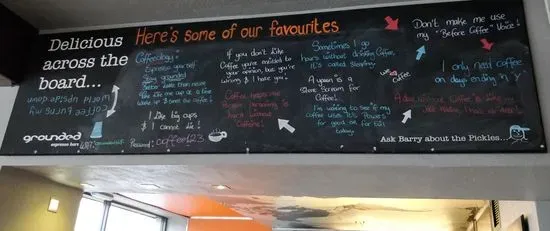 Delicious
across the
board...
Here's some of our favourites
Coffeology
Espresso yourself
Stay grounded
Better latte than never
Take life one cup at a time
Wake up & smell the coffee!
coffee turns my
world upside down
grounded
espresso bars
WiFi:
Password: coffee123
I like big cups
& I cannot lie!
If you don't like
Coffee you're entitled to
your opinion, but you're
wrong & I hate you!
Coffee keeps me
hard without
Caffeine!
Sometimes I go
hours without drinking Coffee,
It's called Sleeping
A yawn is a
Silent Scream for
Coffee!
I'm waiting to see if my
coffee uses it's Powers
for good or for Evil
today.
Don't make me use
my "Before Coffee" Voice!
I only need coffee
on days ending in 'Y'
A day without Coffee is like
Ask Barry about the Pickles...